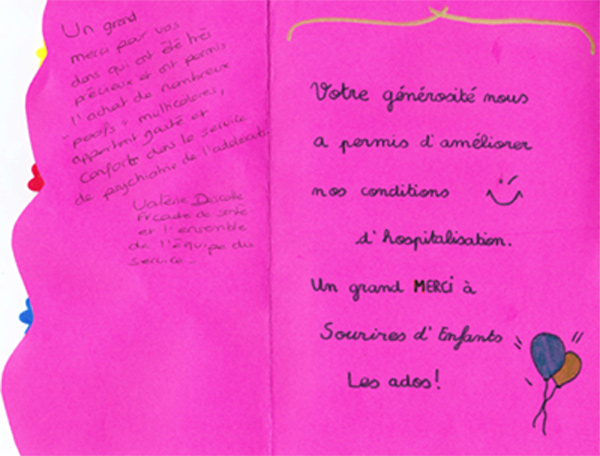 Un grand
merci pour vos
dons qui ont été très
précieux et ont permis
l'achat de nombreux
"poofs" multicolores,
apportant gaité et
confort dans le service
de psychiatrie de l'adolescent.
Valérie
cadre de santé
et l'ensemble
de l'équipe du
service.
Votre générosité nous
a permis d'améliorer
nos conditions
d'hospitalisation.
Un grand MERCI à
Sourires d'Enfants
Les ados!